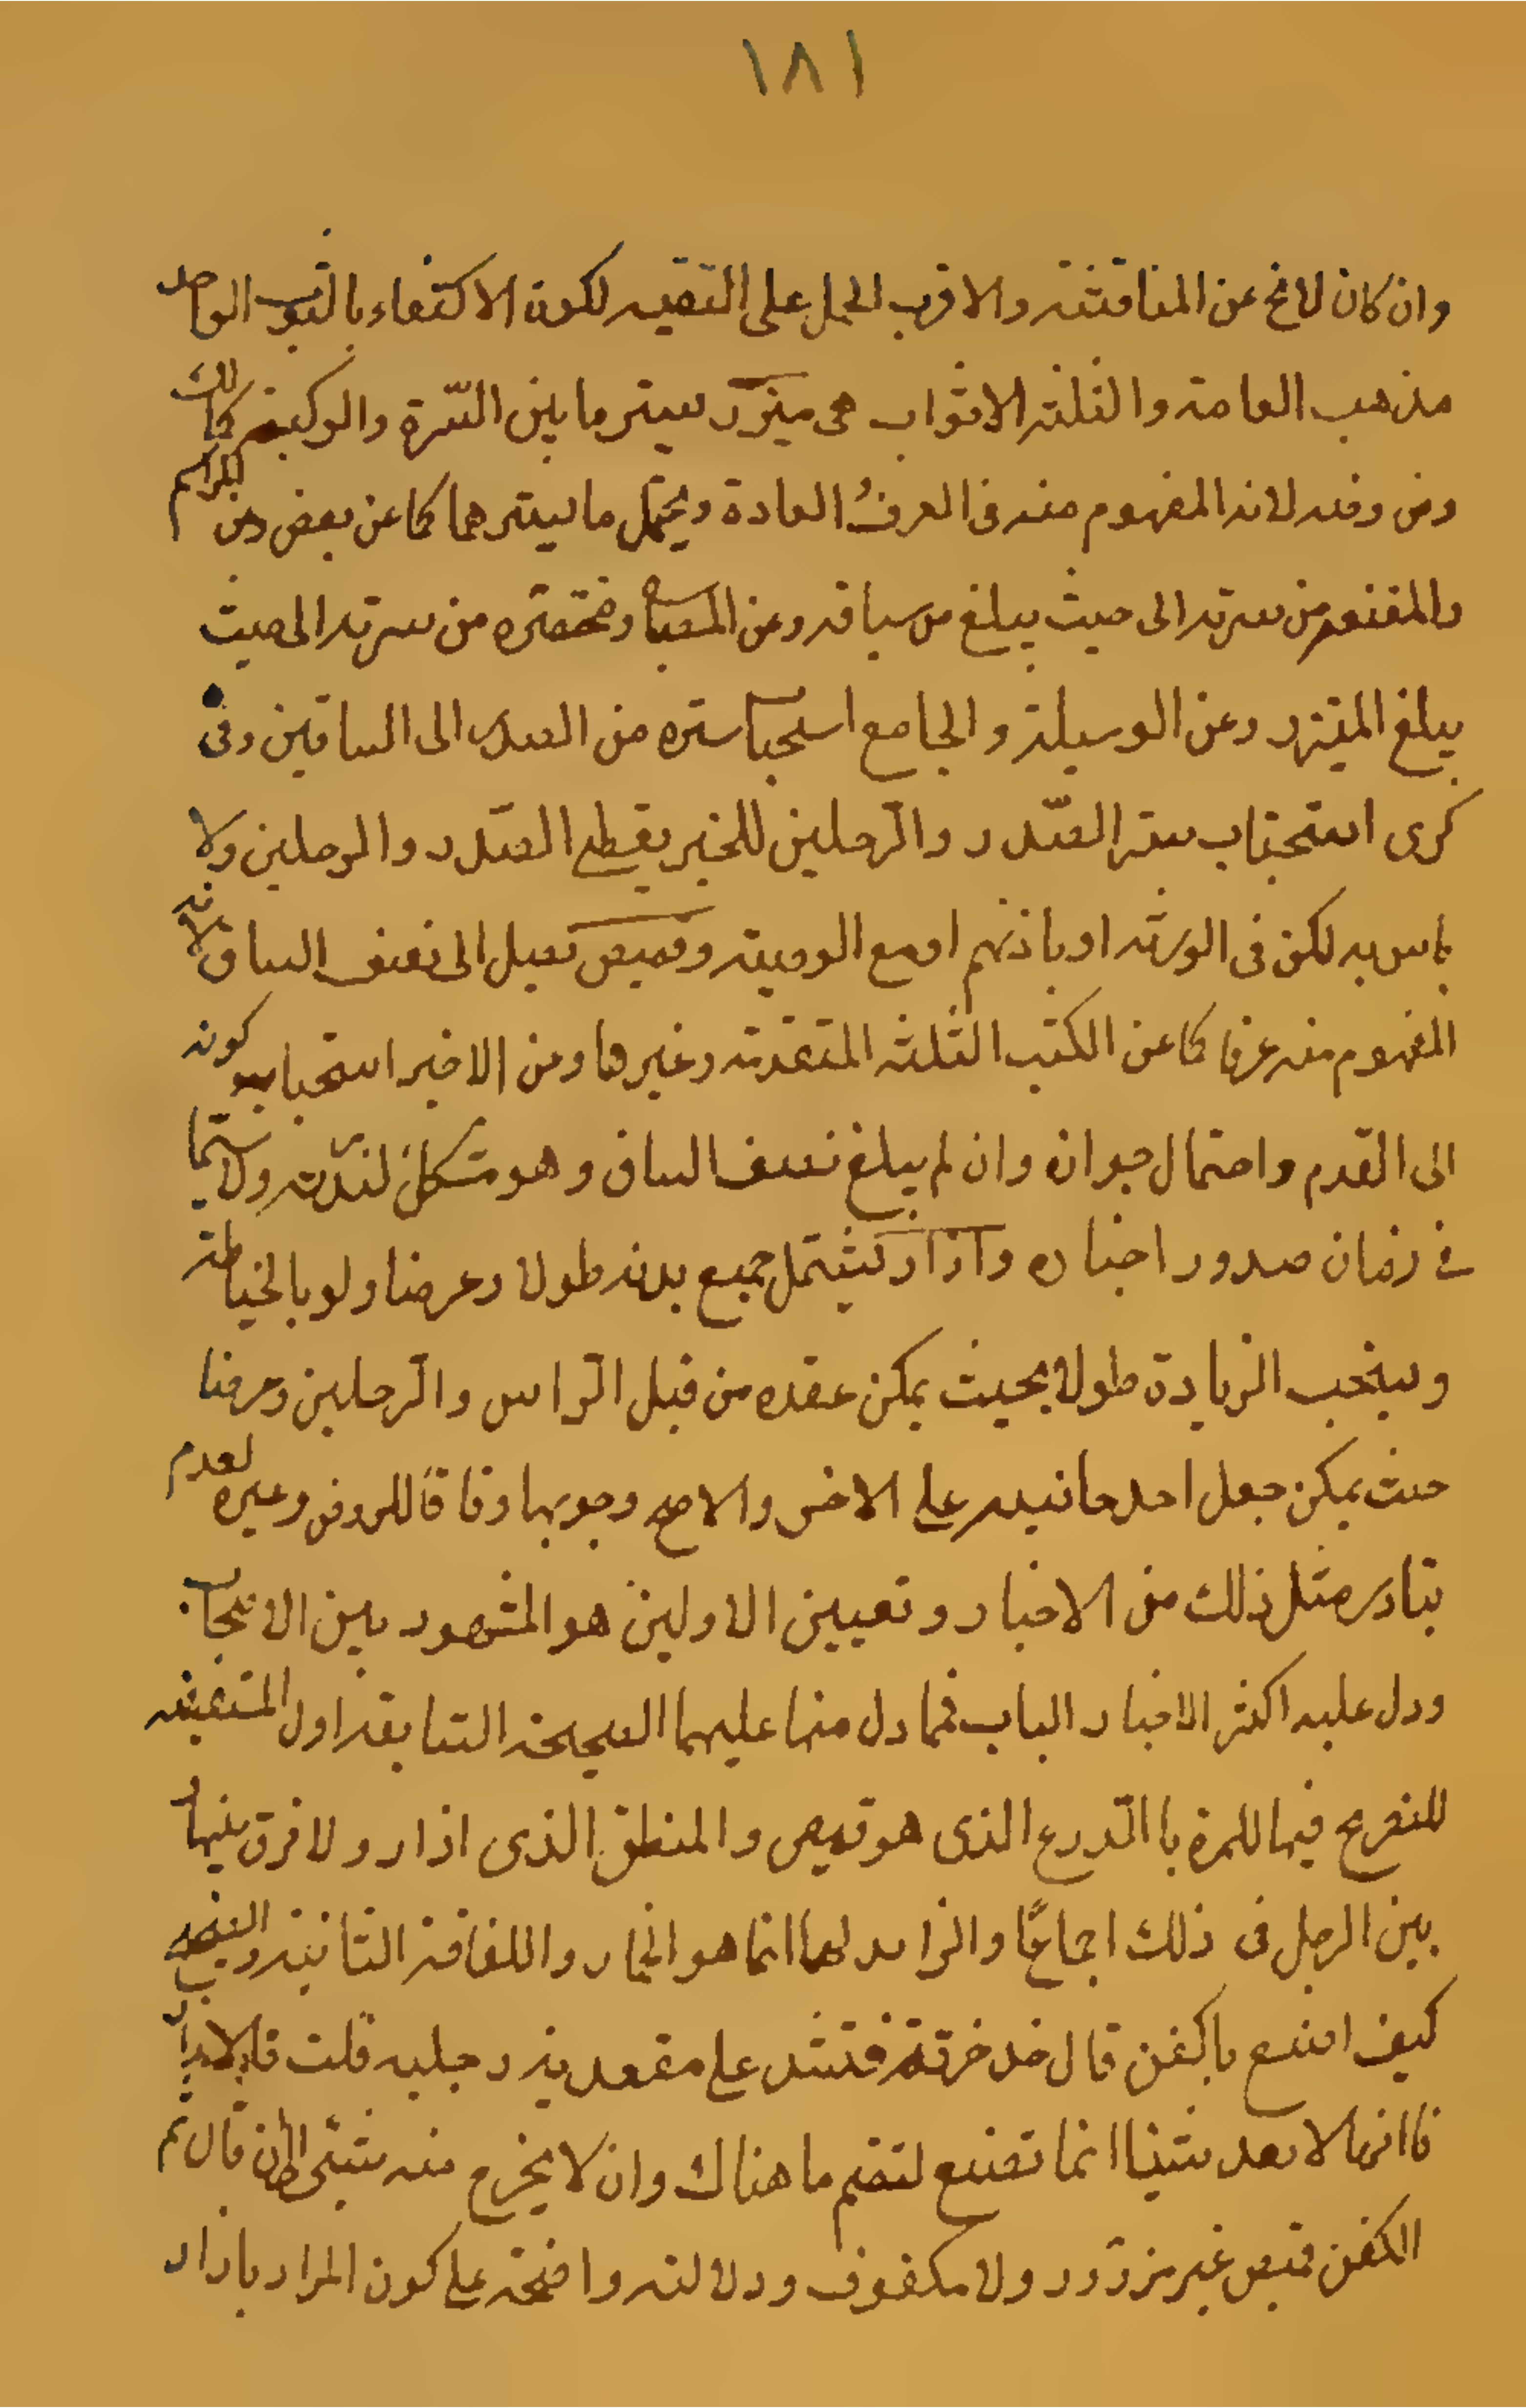 ١٨١
وان كان لا يخ عن المناقشة والاقرب الحمل على التقيه لكون الاكتفاء بالثوب الواحد
مذهب العامة والثلثة الاثواب هى ميزر يستر ما بين السّرة والركبة كالك
وض وفنه لانه المفهوم منه فى العرف العادة ويحتمل ما يسترهما كما عن بعض وعن المراسم
والمقنعه من سرته الى حيث يبلغ من ساقه وعن المصباح ومختصره من سرته الى حيث
يبلغ الميزر وعن الوسيلة والجامع استحباب ستره من الصدر الى الساقين وفى
كرى استحباب ستر الصّدر والرجلين للخبر يغطى الصدر والرجلين ولا
باس به لكن فى الورثه او باذنهم او مع الوصية وقميص يصل الى نصف الساق لانه
المفهوم منه عرفا كما عن الكتب الثلثه المتقدمه وغيرها وعن الاخير استحباب كونه
الى القدم واحتمال جوازه وان لم يبلغ نصف الساق وهو مشكل لندرته ولا سيّما
فى زمان صدور اخباره وازار يشتمل جميع بدنه طولا وعرضا ولو بالخياطة
ويستحب الزيادة طولا بحيث يمكن عقده من قبل الراس والرجلين وعرضا
حيث يمكن جعل احد جانبيه على الاخر والاصح وجوبها وفاقًا للروض وغيره لعدم
تبادر مثل ذلك من الاخبار وتعيين الاولين هو المشهور بين الاصحاب
ودل عليه اكثر الاخبار الباب فمما دل منها عليهما الصحيحة السابقة اول المستفيضه
للتصريح فيها للمرة باالدرع الذى هو قميص والمنطق الذى ازار ولا فرق بينها و
بين الرجل فى ذلك اجماعًا والزايد لها انما هو الخمار واللفافة الثانية و الصحيح
كيف اصنع باكفن قال خذ خرقة فتشد على مقعديه ورجليه قلت فالازار
فاانها لا تعد شيئا انما تصنع لتضم ما هناك وان لا يخرج منه شئ الى ان قال ثم
الكفن قميص غير مزرور ولا مكفوف ودلالته واضحة على كون المراد بازار